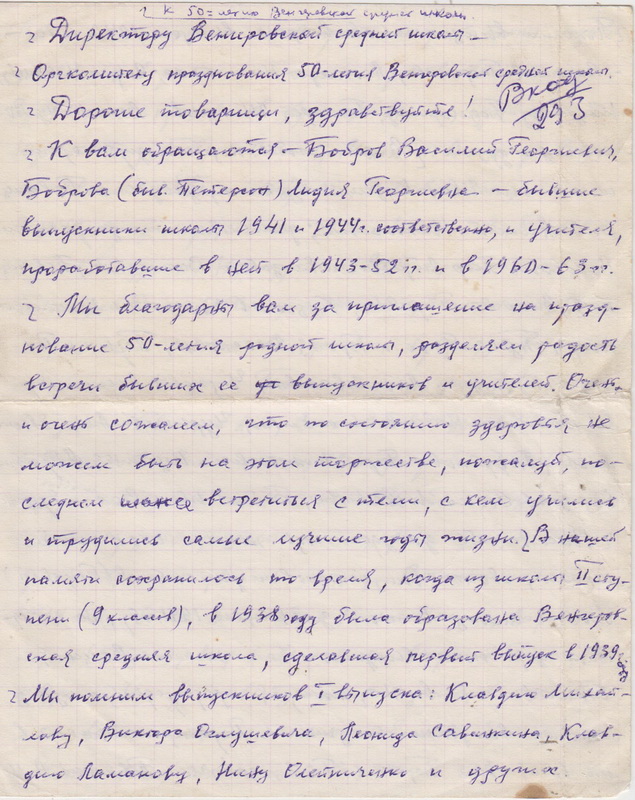 К 50-летию Венгеровской средней школы
Директору Венгеровской средней школы
Оргкомитету празднования 50-летия Венгеровской средней школы.
Вход
293
Дорогие товарищи, здравствуйте!
К вам обращаются – Бобров Василий Георгиевич,
Боброва (быв. Петерсон) Лидия Георгиевна – бывшие
выпускники школы 1941 и 1944 г. соответственно, и учителя,
проработавшие в ней в 1943-52 гг. и в 1960-63 гг.
Мы благодарны вам за приглашение на празд-
нование 50-летия родной школы, разделяем радость
встречи бывших ее выпускников и учителей. Очень
и очень сожалеем, что по состоянию здоровья не
можем быть на этом торжестве, пожалуй, по-
следнем шансе встретиться с теми, с кем учились
и трудились самые лучшие годы жизни. В нашей
памяти сохранилось то время, когда из школы II сту-
пени (9 классов), в 1938 году была образована Венгеров-
ская средняя школа, сделавшая первый выпуск в 1939
Мы помним выпускников I выпуска: Клавдию Михай-
лову, Виктора Оглушевича, Леонида Савицкина, Клав-
дию Ламанову, Нину Олейниченко и других.